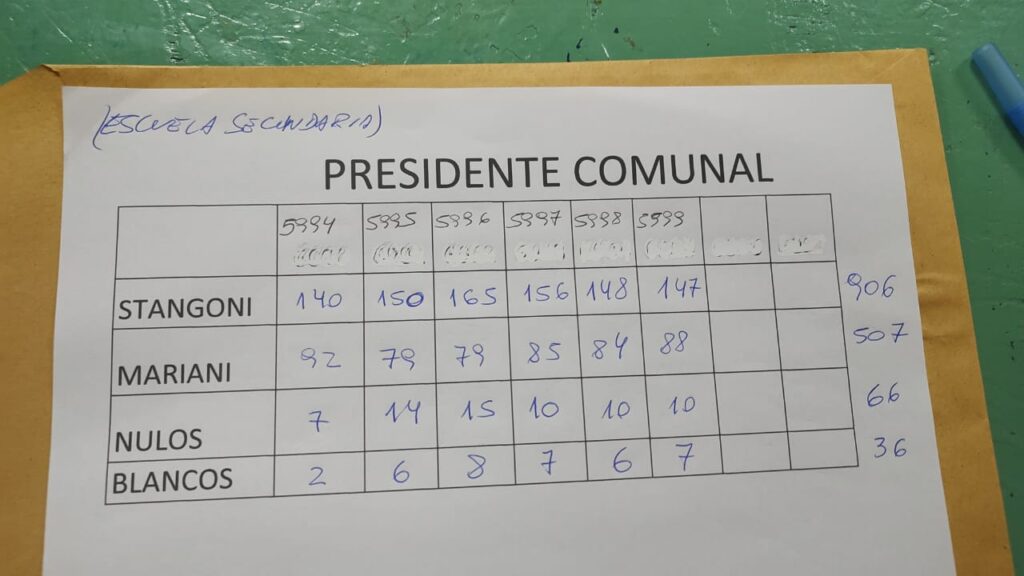 (ESCUELA SECUNDARIA)
PRESIDENTE COMUNAL
5994 5995 5996 5997 5998 5999
STANGONI 140 150 165 156 148 147 906
MARIANI 92 79 79 85 84 88 507
NULOS 7 14 15 10 10 10 66
BLANCOS 2 6 8 7 6 7 36